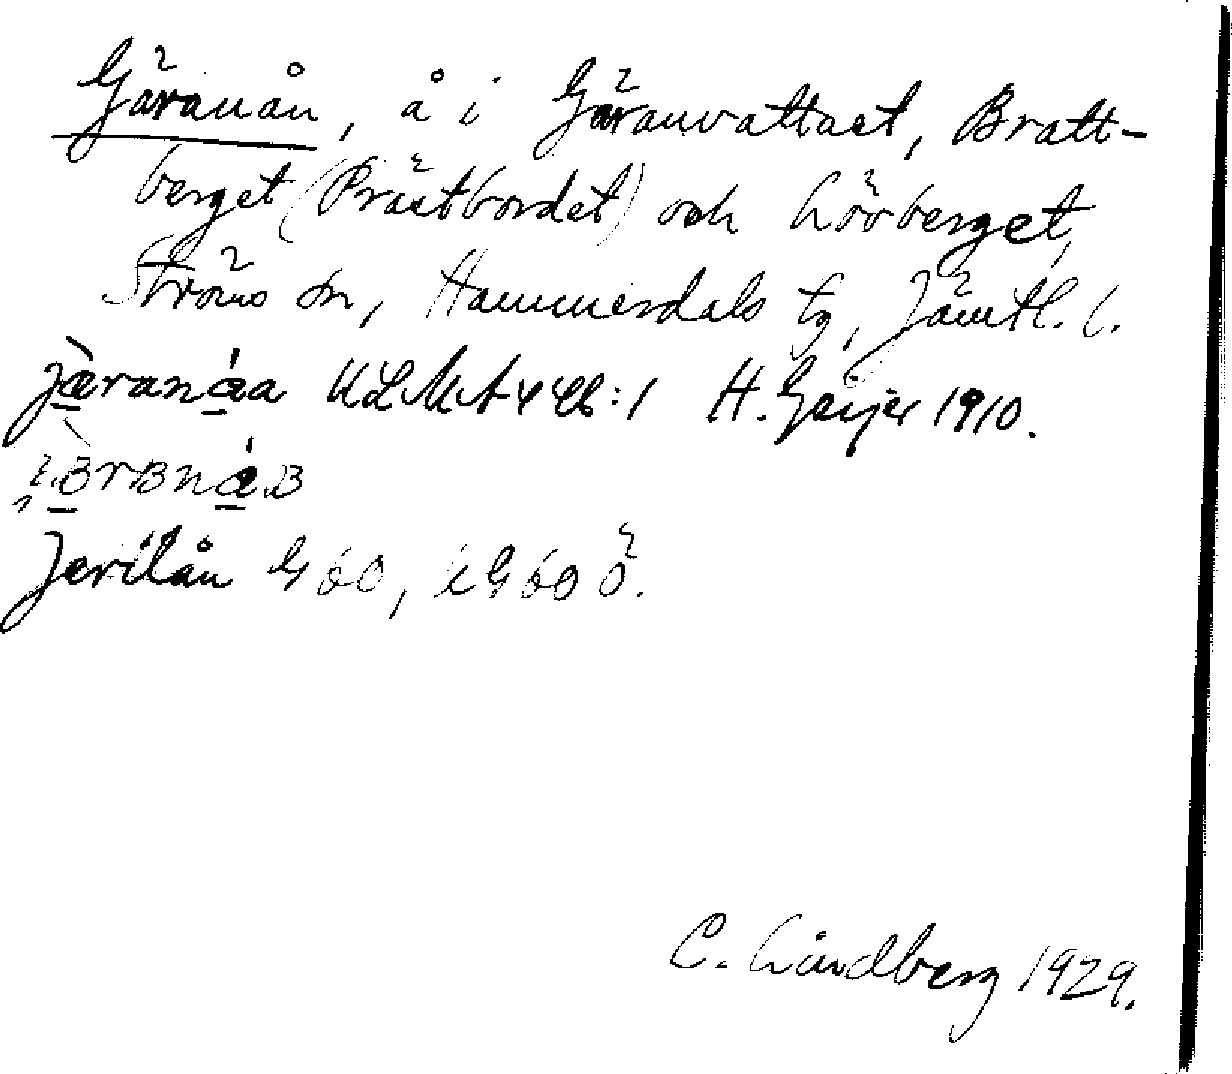 Gäranån, å i Gäranvattnet, Bratt-
berget (Prästbordet) och Lövberget,
Ströms sn, Hammerdals tg, Jämtl. l.
jæ̀ranáa ULMA 446:1 H. Geijer 1910.
Jerilån G 60, kG 60 ö.
C. Lindberg 1929.